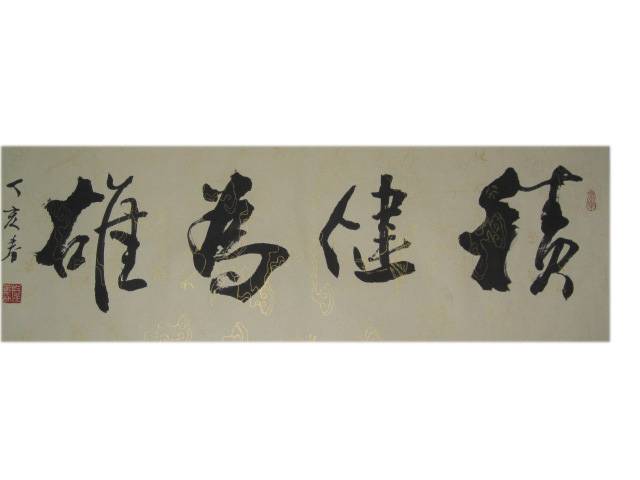 積健為雄
丁亥春